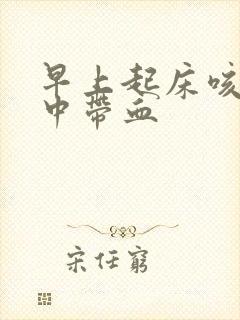 早上起床咳
中带血
宋任窮